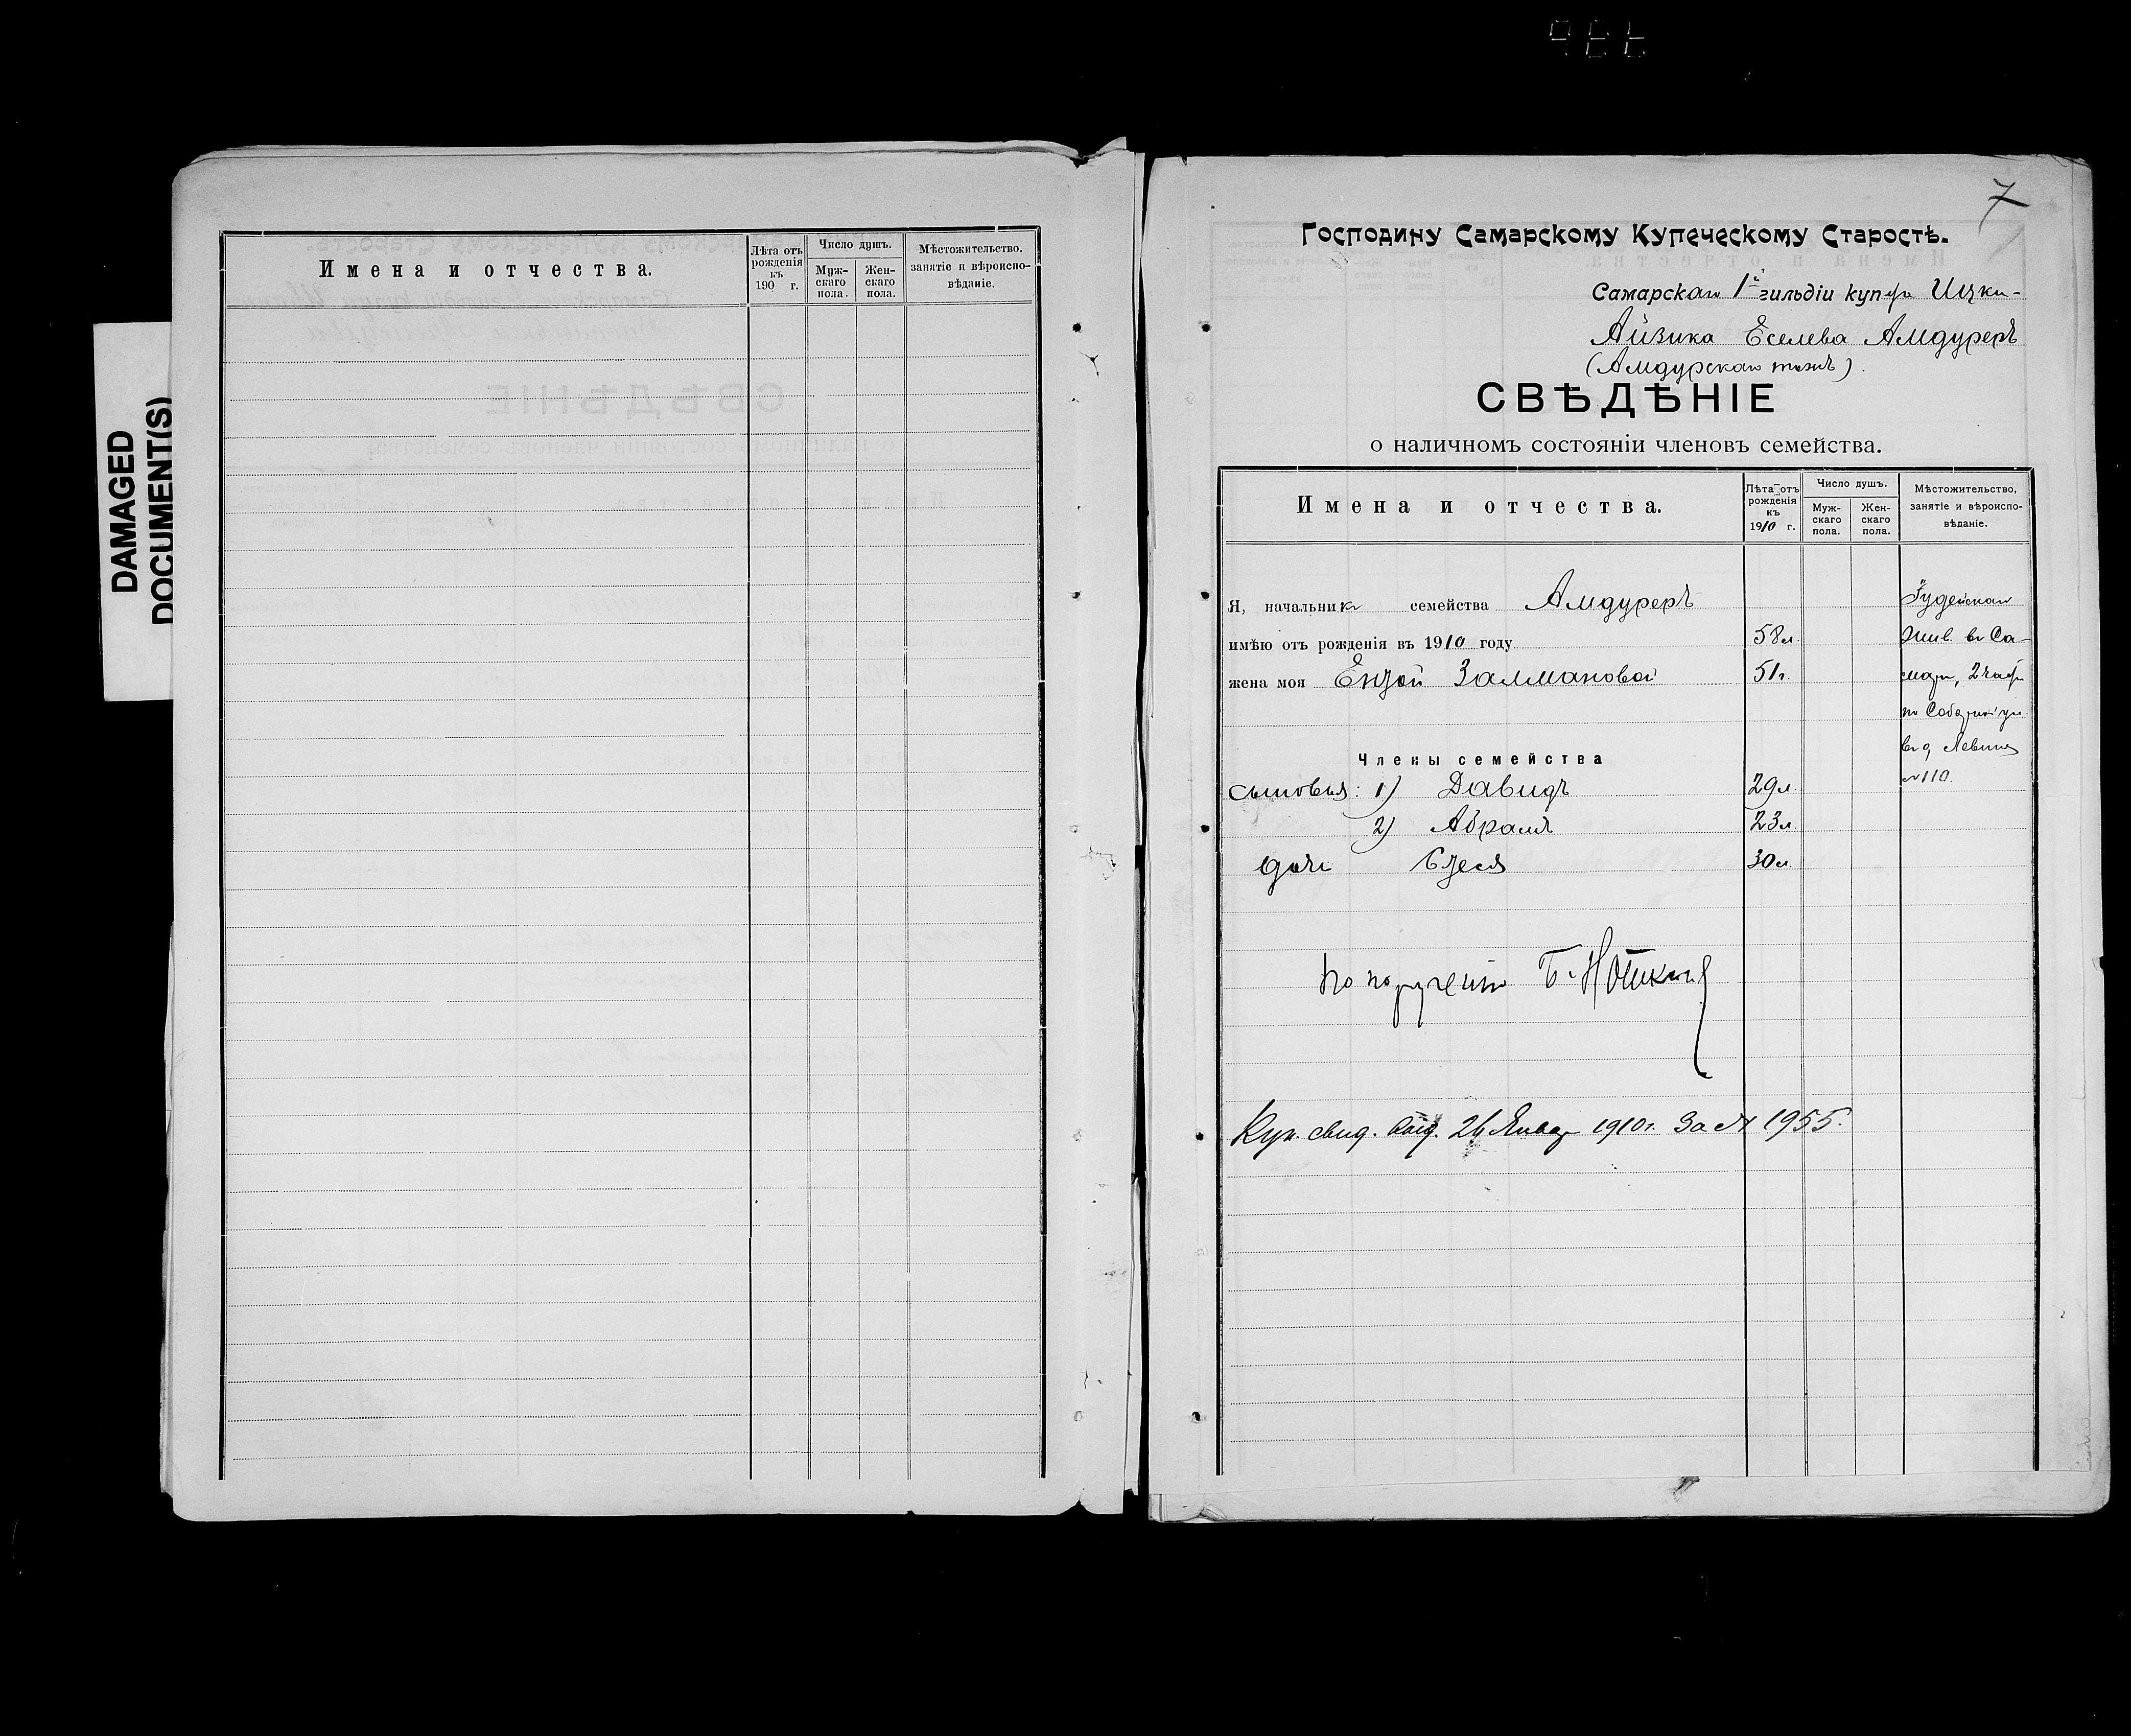 DAMAGED
DOCUMENT(S)
Имена и отчества.
Лѣта отъ рожденія къ 190 г.
Число душъ.
Муж-скаго пола.
Жен-скаго пола.
Мѣстожительство. занятіе и вѣроиспо-вѣданіе.
7
Господину Самарскому Купеческому Старостѣ.
Самарскаго 1й гильдіи купца Ицки-
Айзика Еселева Амдуреръ
(Амдурскаго тожъ).
СВѢДѢНІЕ
о наличномъ состояніи членовъ семейства.
Имена и отчества.
Лѣта отъ рожденія къ 1910 г.
Число душъ.
Муж-скаго пола.
Жен-скаго пола.
Мѣстожительство, занятіе и вѣроиспо-вѣданіе.
Я, начальник семейства Амдуреръ Іудейскаго
имѣю отъ рожденія въ 1910 году 58 л. жив. въ Са-
жена моя Залмановой 51 г. 2 части
по Соборной ул.
въ д Левина
Члены семейства
№ 110.
сыновья: 1) Давидъ 29 л.
2) Абрамъ 23 л.
дочь 30 л.
по порученію Б.
Куп. свид. 26 Января 1910 г. за № 1955.